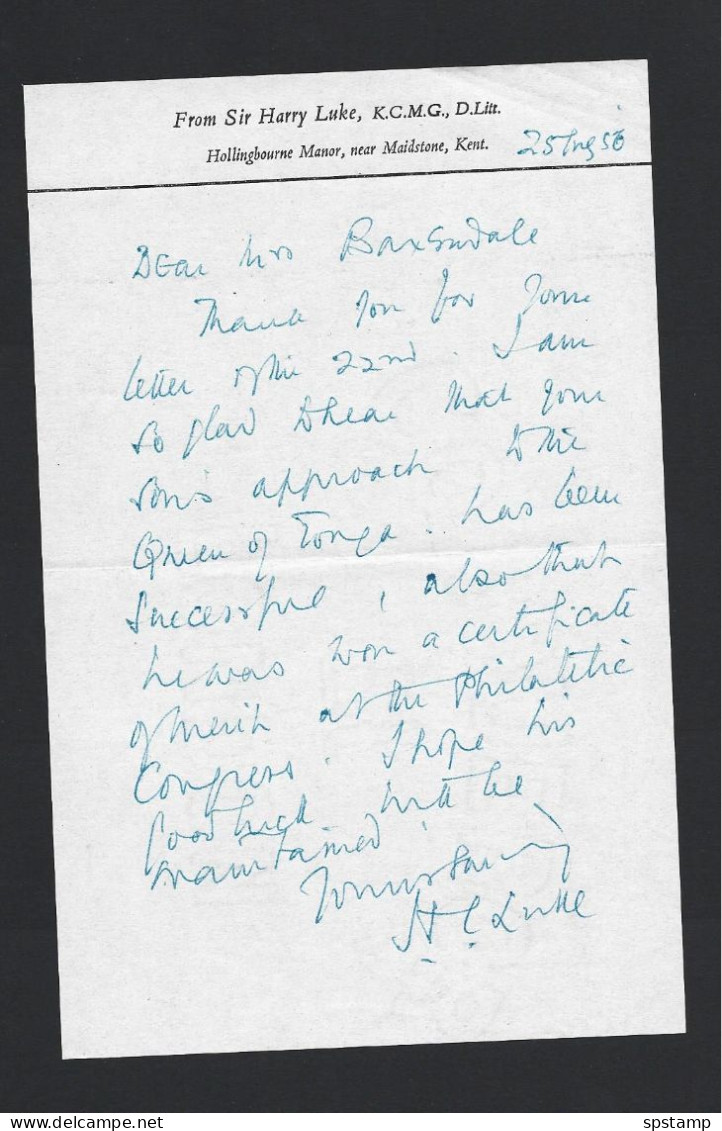 From Sir Harry Luke, K.C.M.G., D.Litt.
Hollingbourne Manor, near Maidstone, Kent.
25 Aug 56
Dear Mrs Baxendale
Thank you for your
letter of the 22nd. I am
so glad to hear that your
son's approach to the
Queen of Tonga has been
successful, also that
he has won a certificate
of merit at the Philatelic
Congress. I hope his
good luck will be
maintained.
Yours sincerely
H. C. Luke
spstamp